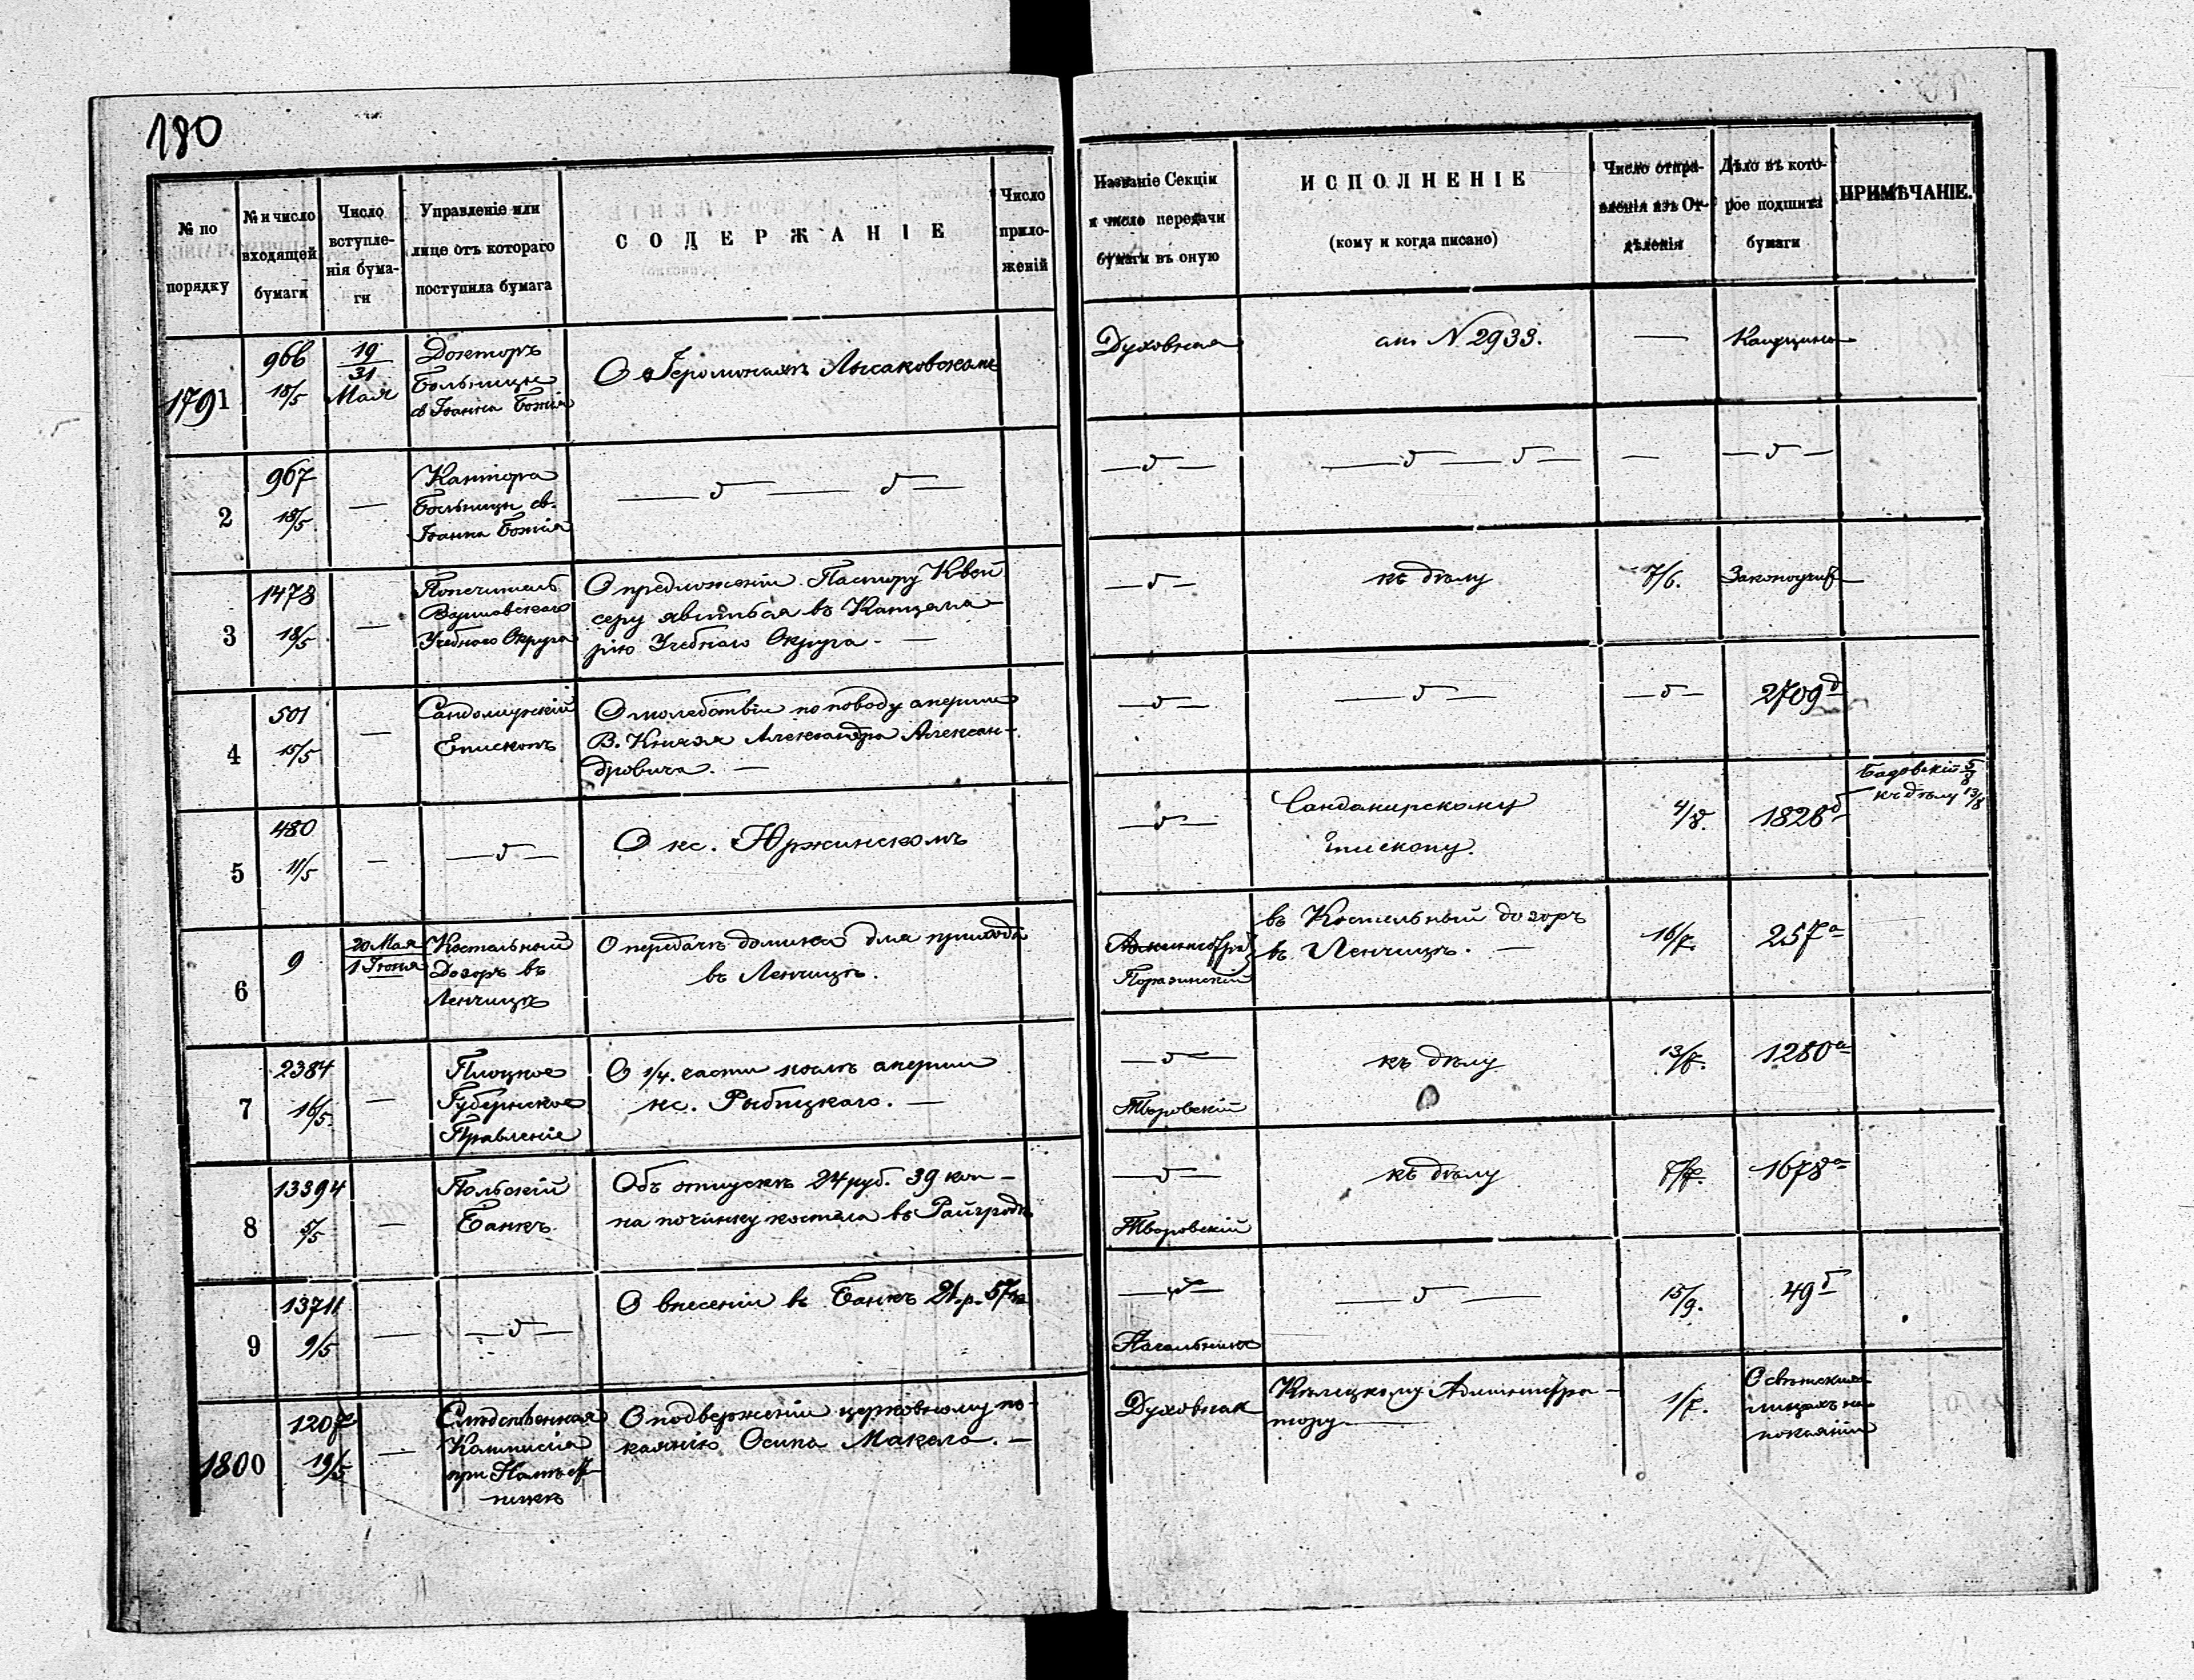 180
№ по порядку
№ и число входящей бумаги
Число вступленія бумаги
Управленіе или лице отъ котораго поступила бумага
СОДЕРЖАНІЕ
Число приложеній
Названіе Секціи и число передачи бумаги въ оную
ИСПОЛНЕНІЕ
(кому и когда писано)
Число отправленія изъ Отдѣленія
Дѣло въ которое подшита бумаги
ПРИМѢЧАНІЕ.
1791
966
18/5
19/31 Мая
Докторъ
Больницы
св Іоанна Божія
О Іеромонахѣ Лысаковскомъ
Духовная
№ 2933.
—
2
967
18/5
—
Контора
Больницы св.
Іоанна Божія
— 5 — 5 —
— 5 —
— 5 — 5 —
—
— 5 —
3
1478
18/5
—
Попечитель
Варшавскаго
Учебнаго Округа
О предложеніи Пастору
явиться въ Канцеля-
рію Учебнаго Округа. —
— 5 —
къ дѣлу
7/6.
Законоучит
4
501
15/5
—
Сандомирскій
Епископъ
О молебствіи по поводу смерти
В. Князя Александра Алексан-
дровича. —
— 5 —
— 5 —
— 5 —
2709 д
5
480
11/5
—
— 5 —
О кс. Юржинскомъ
— 5 —
Сандомирскому
Епископу.
4/8.
1826 д
5/8
къ дѣлу 13/8
6
9
20 Мая
1 Іюня
Костельный
Дозоръ въ
Ленчицѣ
О передачѣ домика для прихода
въ Ленчицѣ.
въ Костельный дозоръ
въ Ленчицѣ. —
16/7.
257 а
7
2384
16/5.
—
Плоцкое
Губернское
Правленіе
О 1/4. части послѣ смерти
кс. Рыбицкаго. —
— 5 —
Творовскій
къ дѣлу
13/7.
1280 а
8
13394
5/5
—
Польскій
Банкъ.
Объ отпускѣ 24 руб. 39 коп —
на починку костела въ Райгродѣ
— 5 —
Творовскій
къ дѣлу
7/7.
1678 а
9
13711
9/5
—
— 5 —
О внесеніи въ Банкъ 21. р. 57 к
— 5 —
— 5 —
15/9.
49 б
1800
1207
19/5
—
Слѣдственная
Коммисія
при Намѣст-
никѣ
О подверженіи церковному по-
каянію Осипа Макела. —
Духовная
Кѣлецкому Администра-
тору —
1/7.
О свѣтскихъ
лицахъ на
покаяніи